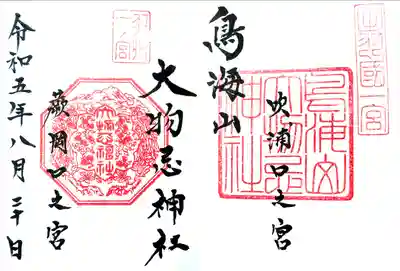 出羽國一宮
鳥海山大物忌神社
吹浦口之宮
鳥海山
大物忌神社
蕨岡口之宮
令和五年八月三十日